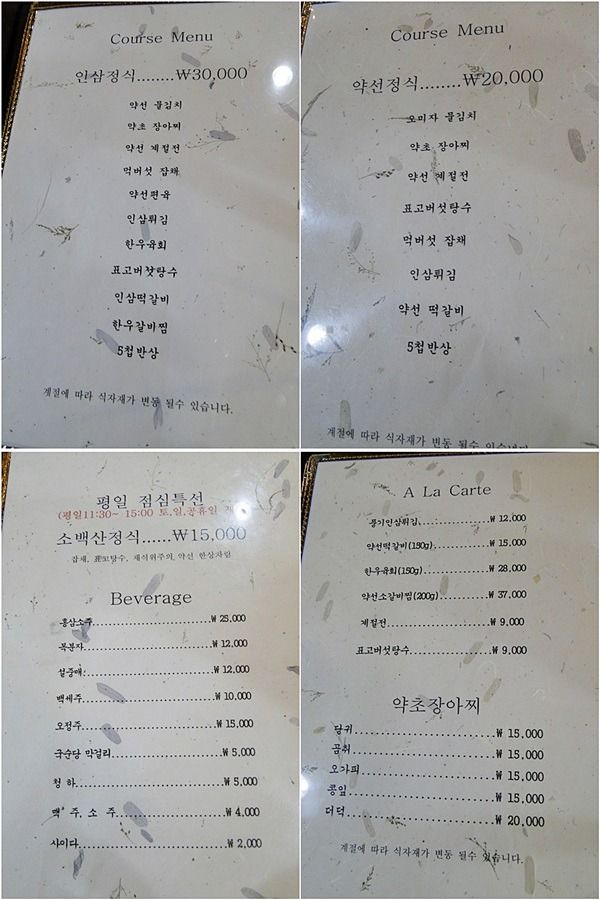 Course Menu
인삼정식........₩30,000
약선 물김치
약초 장아찌
약선 계절전
먹버섯 잡채
약선편육
인삼튀김
한우육회
표고버섯탕수
인삼떡갈비
한우갈비찜
5첩반상
계절에 따라 식자재가 변동 될수 있습니다.
Course Menu
약선정식........₩20,000
오미자 물김치
약초 장아찌
약선 계절전
표고버섯탕수
먹버섯 잡채
인삼튀김
약선 떡갈비
5첩반상
계절에 따라 식자재가 변동 될수 있습니다
평일 점심특선
(평일11:30~ 15:00 토,일,공휴일
소백산정식.....₩15,000
잡채, 표고탕수, 채식위주의, 약선 한상차림
Beverage
홍삼소주 ₩ 25,000
복분자 ₩ 12,000
설중매 ₩ 12,000
백세주 ₩ 10,000
오정주 ₩ 15,000
국순당 막걸리 ₩ 5,000
청 하 ₩ 5,000
맥 주, 소 주 ₩ 4,000
사이다 ₩ 2,000
A La Carte
풍기인삼튀김 ₩ 12,000
약선떡갈비(150g) ₩ 15,000
한우육회(150g) ₩ 28,000
약선소갈비찜(200g) ₩ 37,000
계절전 ₩ 9,000
표고버섯탕수 ₩ 9,000
약초장아찌
당귀 ₩ 15,000
곰취 ₩ 15,000
오가피 ₩ 15,000
콩잎 ₩ 15,000
더덕 ₩ 20,000
계절에 따라 식자재가 변동 될수 있습니다.